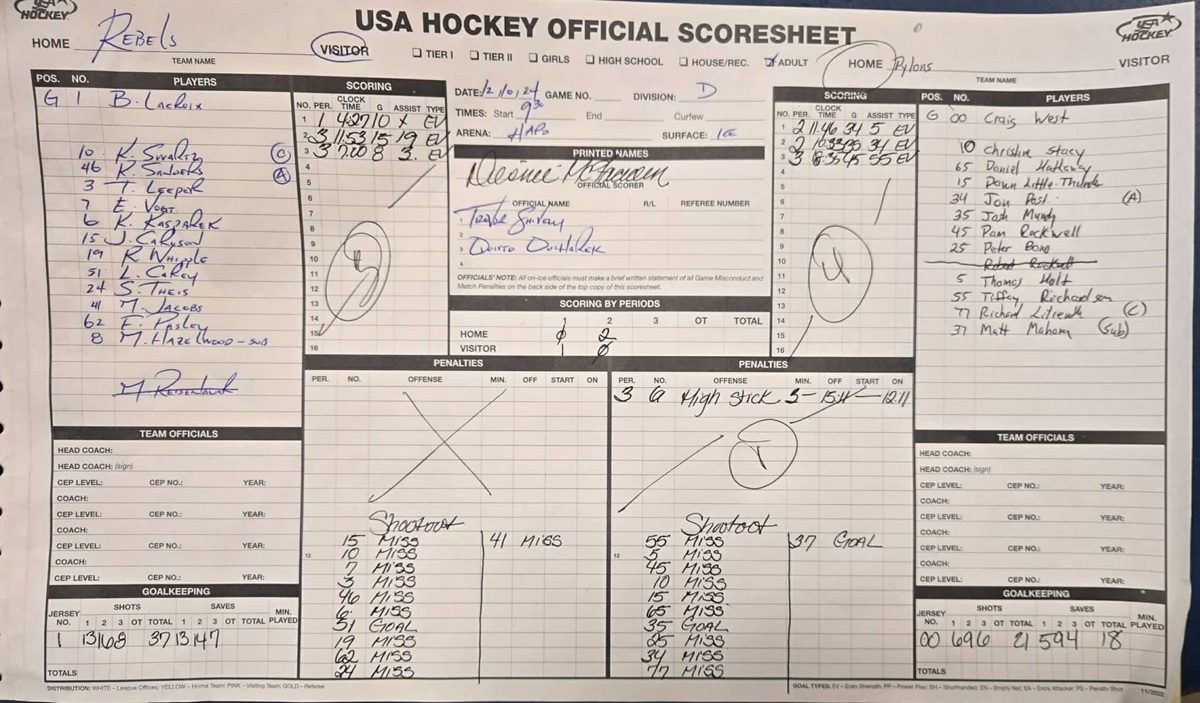 USA HOCKEY
USA HOCKEY OFFICIAL SCORESHEET
USA HOCKEY
HOME REBELS
TEAM NAME
VISITOR
☐ TIER I ☐ TIER II ☐ GIRLS ☐ HIGH SCHOOL ☐ HOUSE/REC. ☑ ADULT
HOME Pylons
TEAM NAME
VISITOR
POS. NO. PLAYERS
G 1 B. Lacroix
10 K. Swartz C
46 K. Sanders A
3 T. Leeper
7 E. Vogt
6 K. Kasparek
15 J. Carlson
19 R Whipple
51 L. Carey
24 S. Theis
41 M. Jacobs
62 E. Pasley
8 M. Hazelwood - sub
SCORING
NO. PER. CLOCK TIME G ASSIST TYPE
1 1 4:27 10 X EV
2 3 11:53 15 19 EV
3 3 7:00 8 3. EV
4
5
6
7
8
9
10
11
12
13
14
15
16
3
DATE: 12/10/24 GAME NO. DIVISION: D
TIMES: Start 9:30 End Curfew
ARENA: HAPO SURFACE: ICE
PRINTED NAMES
OFFICIAL SCORER
OFFICIAL NAME R/L REFEREE NUMBER
1
2
3
4
OFFICIALS' NOTE: All on-ice officials must make a brief written statement of all Game Misconduct and
Match Penalties on the back side of the top copy of this scoresheet.
SCORING BY PERIODS
1 2 3 OT TOTAL
HOME 0 2
VISITOR 1 0
SCORING
NO. PER. CLOCK TIME G ASSIST TYPE
1 2 11:46 34 5 EV
2 2 34 EV
3 3 45 55 EV
4
5
6
7
8
9
10
11
12
13
14
15
16
4
POS. NO. PLAYERS
G 00 Craig West
10 Christine Stacy
65 Daniel Hathaway
15 Dawn Little
34 Jon Post (A)
35 Josh Mundy
45 Pam Rockwell
25 Peter Bong
5 Thomas Holt
55 Tiffany Richardson
77 Richard (C)
37 Matt Mahoney (Sub)
TEAM OFFICIALS
HEAD COACH:
HEAD COACH: (sign)
CEP LEVEL: CEP NO.: YEAR:
COACH:
CEP LEVEL: CEP NO.: YEAR:
COACH:
CEP LEVEL: CEP NO.: YEAR:
COACH:
CEP LEVEL: CEP NO.: YEAR:
GOALKEEPING
JERSEY NO. SHOTS 1 2 3 OT TOTAL SAVES 1 2 3 OT TOTAL MIN. PLAYED
1 13 16 8 37 13 14 7
TOTALS
PENALTIES
PER. NO. OFFENSE MIN. OFF START ON
Shootout
15 MISS 41 MISS
12 10 MISS
7 MISS
3 MISS
46 MISS
6 MISS
51 GOAL
19 MISS
62 MISS
24 MISS
PENALTIES
PER. NO. OFFENSE MIN. OFF START ON
3 6 High Stick 3 - 15:11 — 12:11
1
Shootout
55 MISS 37 GOAL
12 5 MISS
45 MISS
10 MISS
15 MISS
65 MISS
35 GOAL
25 MISS
34 MISS
77 MISS
TEAM OFFICIALS
HEAD COACH:
HEAD COACH: (sign)
CEP LEVEL: CEP NO.: YEAR:
COACH:
CEP LEVEL: CEP NO.: YEAR:
COACH:
CEP LEVEL: CEP NO.: YEAR:
COACH:
CEP LEVEL: CEP NO.: YEAR:
GOALKEEPING
JERSEY NO. SHOTS 1 2 3 OT TOTAL SAVES 1 2 3 OT TOTAL MIN. PLAYED
00 6 9 6 21 5 9 4 18
TOTALS
DISTRIBUTION: WHITE – League Offices; YELLOW – Home Team; PINK – Visiting Team; GOLD – Referee
GOAL TYPES: EV – Even Strength; PP – Power Play; SH – Shorthanded; EN – Empty Net; EA – Extra Attacker; PS – Penalty Shot
11/2022